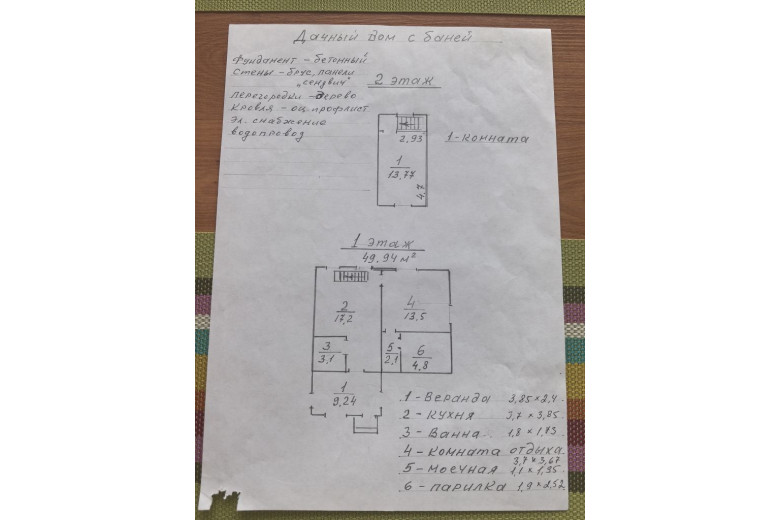 Дачный дом с баней
Фундамент - бетонный
Стены - брус, панели
"сендвич"
перегородки - дерево
Кровля - оц. профлист
Эл. снабжение
водопровод
2 этаж
2,93
1
13,77
4,7
1 - комната
1 этаж
49,94 м²
2
17,2
4
13,5
3
3,1
5
2,1
6
4,8
1
9,24
1 - Веранда 3,85 × 2,4
2 - кухня 3,7 × 3,85
3 - Ванна 1,8 × 1,73
4 - комната отдыха
3,7 × 3,67
5 - моечная 1,1 × 1,95
6 - парилка 1,9 × 2,52